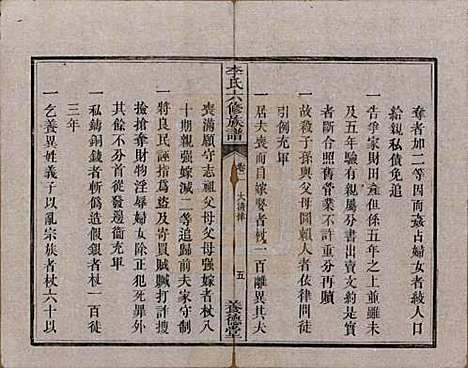 奪者加二等因而姦占婦女者絞人口
給親私債免追
一告爭家財田產但係五年之上並雖未
及五年驗有親屬分書出賣文約是實
者斷合照舊管業不許重分再贖
一故殺子孫與父母圖賴人者依律問徒
引例充軍
一居夫喪而自嫁娶者杖一百離異其夫
李氏六修族譜
卷
大清律
五
養德堂
喪滿願守志祖父母父母強嫁者杖八
十期親強嫁減二等追歸前夫家守制
一將良民誣指為盜及寄賍賣打詐搜
撿搶奪財物淫辱婦女除正犯死罪外
其餘不分首從發邊衞充軍
一私鑄銅錢者斬偽造假銀者杖一百徒
三年
一乞養異姓義子以亂宗族者杖六十以